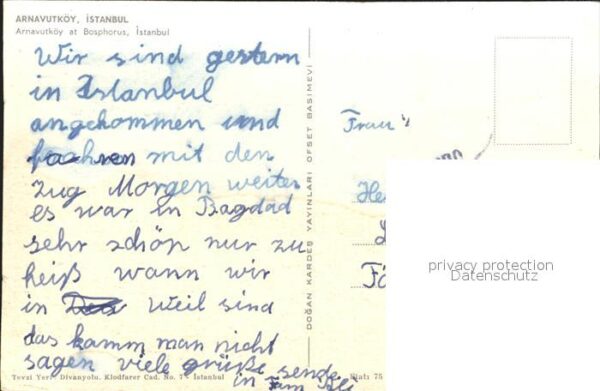 ARNAVUTKÖY, İSTANBUL
Arnavutköy at Bosphorus, İstanbul
Wir sind gestern
in Istanbul
angekommen und
fachren mit den
Zug Morgen weiter
es war in Bagdad
sehr schön nur zu
heiß wann wir
in Weil sind
das kamm man nicht
sagen viele grüße sende
in Fam
Tevzi Yeri Divanyolu. Klodfarer Cad. No. 7 - İstanbul
DOĞAN KARDEŞ YAYINLARI OFSET BASIMEVİ
Fiatı 75
Frau
He
privacy protection
Datenschutz